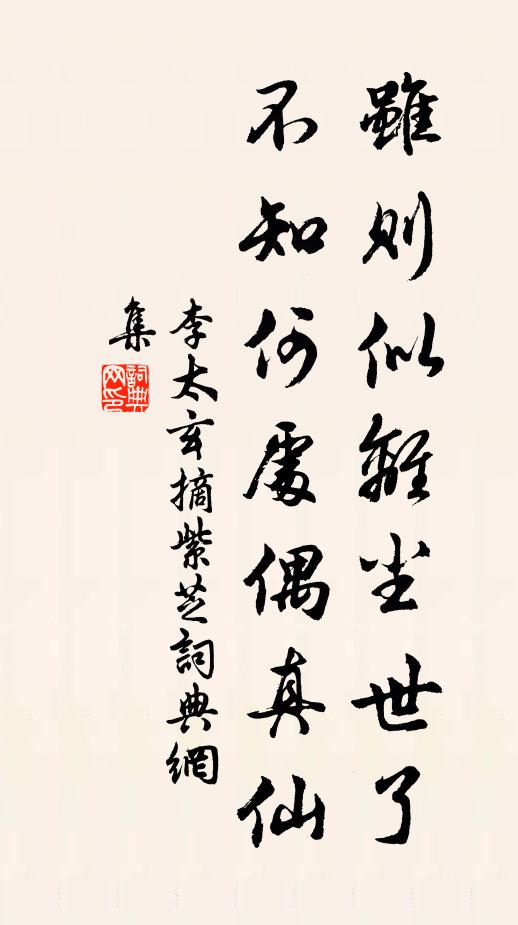 雖則似離塵世了
不知何處偶真仙
李太玄摘紫芝詞典網
集
詞典网印